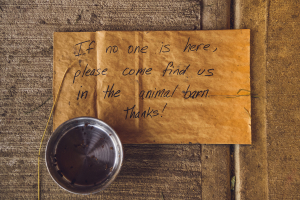 If no one is here,
please come find us
in the animal barn
Thanks!